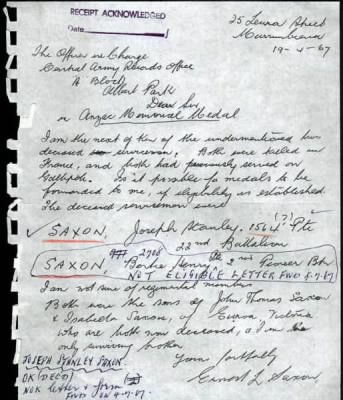 RECEIPT ACKNOWLEDGED
Date
25 Leura Street
Murrumbeena
19-4-67
The Officer in Charge
Central Army Records Office
A Block
Albert Park
Dear Sir,
re Anzac Memorial Medal
I am the next of kin of the undermentioned two
deceased servicemen. Both were killed in
France, and both had previously served on
Gallipoli. Is it possible for medals to be
forwarded to me, if eligibility is established
The deceased servicemen were
SAXON, Joseph Stanley. 1564 (?) Pte
22nd Battalion
SAXON, Henry 2nd Pioneer Btn
NOT ELIGIBLE LETTER FWD
I am not sure of regimental numbers
Both were the sons of John Thomas Saxon
& Isabella Saxon, of Euroa, Victoria
who are both now deceased, & I am his
only surviving brother
Yours faithfully
Ernest L Saxon.
JOSEPH STANLEY SAXON
OK (DECD)
NOK letter & form
FWD ON 4-7-67